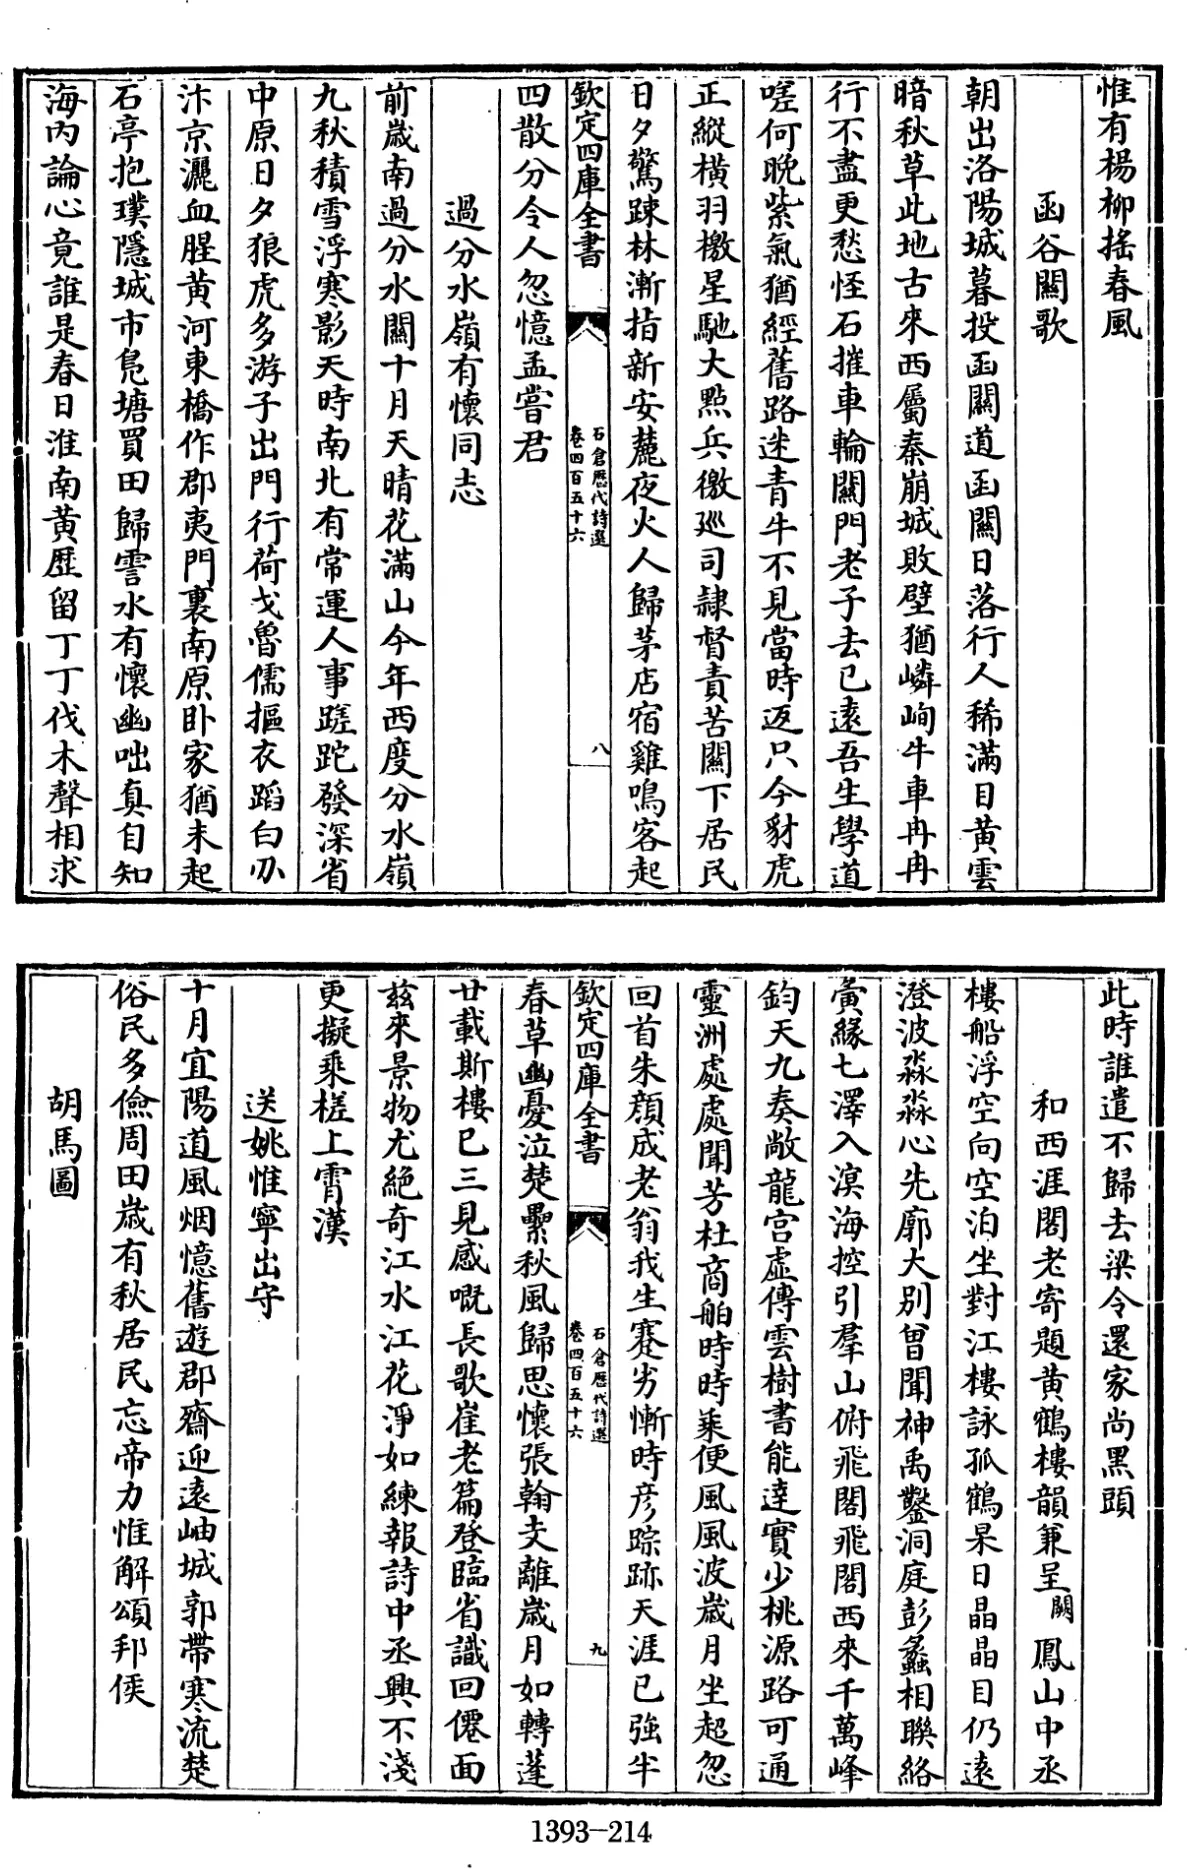 惟有楊柳搖春風
函谷關歌
朝出洛陽城暮投函關道函關日落行人稀滿目黃雲
暗秋草此地古來西屬秦崩城敗壁猶嶙峋牛車冉冉
行不盡更愁怪石摧車輪關門老子去已遠吾生學道
嗟何晩紫氣猶經舊路迷青牛不見當時返只今豺虎
正縱橫羽檄星馳大㸃兵徼廵司隷督責苦關下居民
日夕驚踈林漸指新安麓夜火人歸茅店宿雞鳴客起
欽定四庫全書
石倉歷代詩選
卷四百五十六
八
四散分令人忽憶孟嘗君
過分水嶺有懷同志
前歲南過分水關十月天晴花滿山今年西度分水嶺
九秋積雪浮寒影天時南北有常運人事蹉跎發深省
中原日夕狼虎多游子出門行荷戈魯儒摳衣蹈白刃
汴京灑血腥黃河東橋作郡夷門裏南原卧家猶未起
石亭抱璞隱城市凫塘買田歸霅水有懷幽咄真自知
海內論心竟誰是春日淮南黃歷留丁丁伐木聲相求
此時誰遣不歸去梁令還家尚黑頭
和西涯閣老寄題黃鶴樓韻兼呈闕鳳山中丞
樓船浮空向空泊坐對江樓詠孤鶴杲日晶晶目仍遠
澄波淼淼心先廓大別曾聞神禹鑿洞庭彭蠡相聯絡
夤緣七澤入溟海控引羣山俯飛閣飛閣西來千萬峰
鈞天九奏敞龍宮虛傳雲樹書能達實少桃源路可通
靈洲處處聞芳杜商舶時時乘便風風波歲月坐超忽
回首朱顏成老翁我生蹇劣慚時彥踪跡天涯已強半
欽定四庫全書
石倉歷代詩選
卷四百五十六
九
春草幽憂泣楚纍秋風歸思懷張翰支離歲月如轉蓬
廿載斯樓已三見感嘅長歌崔老篇登臨省識回僊面
茲來景物尤絕奇江水江花淨如練報詩中丞興不淺
更擬乘槎上霄漢
送姚惟寧出守
十月宜陽道風烟憶舊遊郡齋迎遠岫城郭帶寒流楚
俗民多儉周田歲有秋居民忘帝力惟解頌邦侯
胡馬圖
1393-214